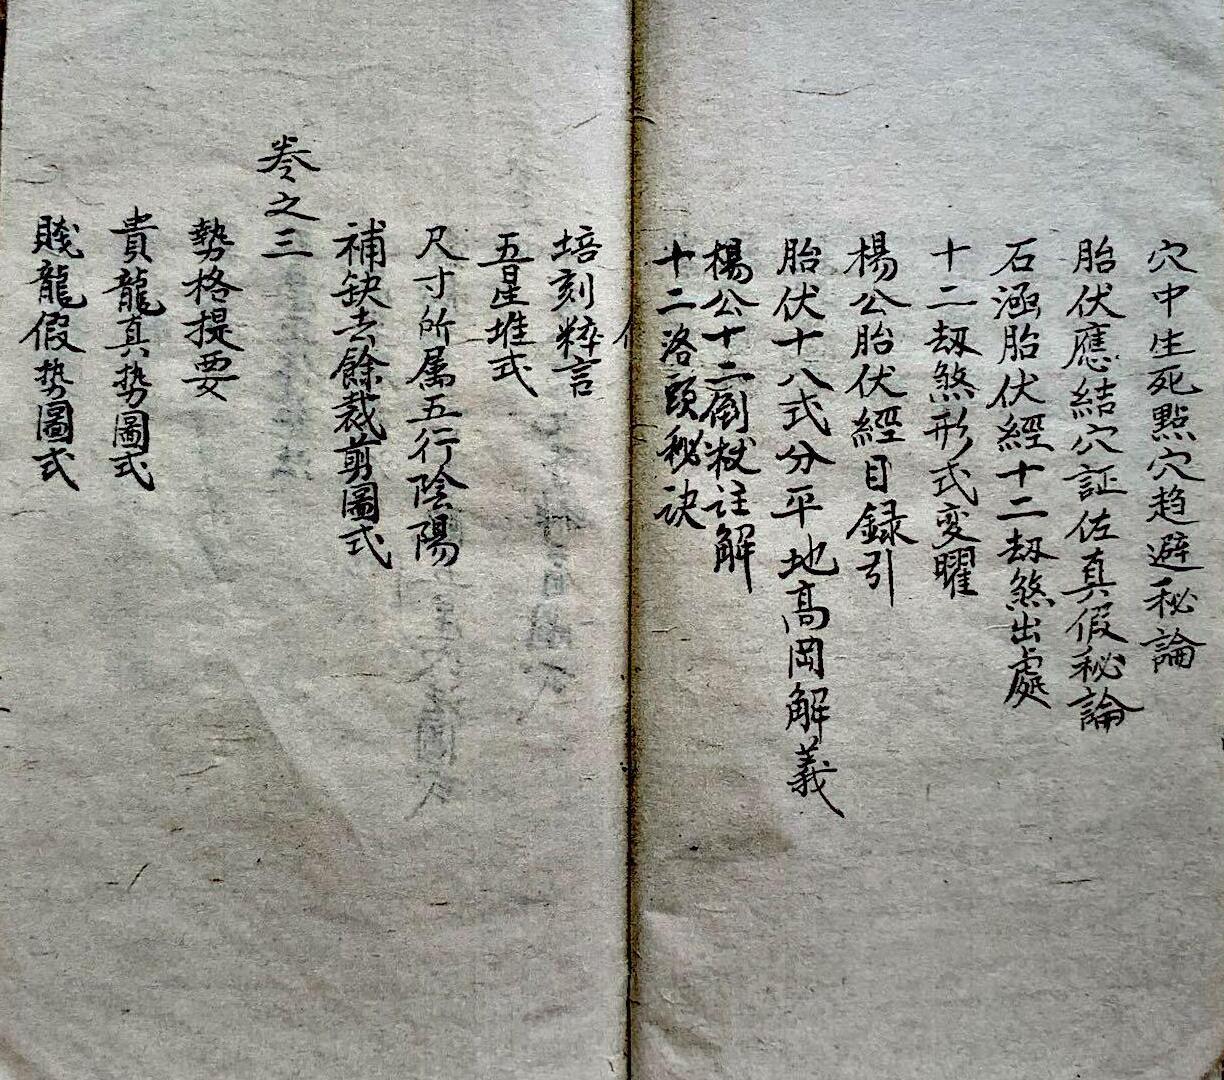 穴中生死點穴趋避秘論
胎伏應結穴証佐真假秘論
石涵胎伏經十二刼煞出處
十二刼煞形式变曜
楊公胎伏經目録引
胎伏十八式分平地高岡解義
楊公十二倒杖註解
十二落頭秘訣
培刻粹言
五星堆式
尺寸所属五行陰陽
補缺去餘裁剪圖式
卷之三
勢格提要
貴龍真势圖式
賤龍假势圖式